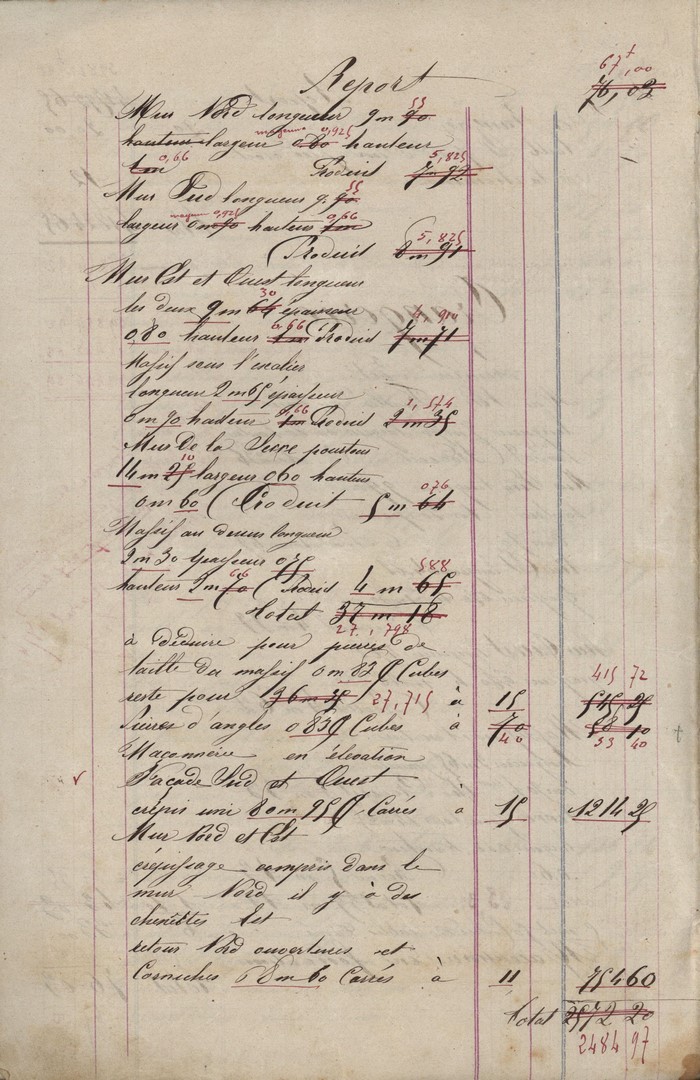 67,00
Report 76,03
Mur Nord longueur 9m 90 55
hauteur largeur moyenne 0,60 0,925 hauteur
1m 0,66 Produit 7m92 5,825
Mur Sud longueur 9.90 55
largeur moyen 0m90 0,925 hauteur 1m 0,66
Produit 8m91 5,825
Mur Est et Ouest longueur
les deux 9m 64 30 épaisseur
0,80 hauteur 1m 0,66 Produit 7m71 4,910
Massif sous l'escalier
longueur 2m65 épaisseur
0m90 hauteur 1m 0,66 Produit 2m35 1,574
Mur De la Serre pourtour
14m 25 10 largeur 060 hauteur
0m60 Produit 5m 64 076
Massif au dessus longueur
3m30 épaisseur 075
hauteur 2m70 66 Produit 4m 65 588
Total 37m18
27,798
à déduire pour pierres de
taille du massif 0m83 Cubes
reste pour 36m35 27,715 à 15 545,25 415 72
Pierres d'angles 0 83 Cubes à 70 40 58 10 53 40
Maçonnerie en élévation
Façade Sud et Ouest
crépis uni 80m95 Carrés à 15 1214 25
Mur Nord et Est
crépissage compris dans le
mur Nord il y à des
Est
retour Nord ouvertures et
Corniches 68m60 Carrés à 11 754 60
Total 2572 20
2484 97